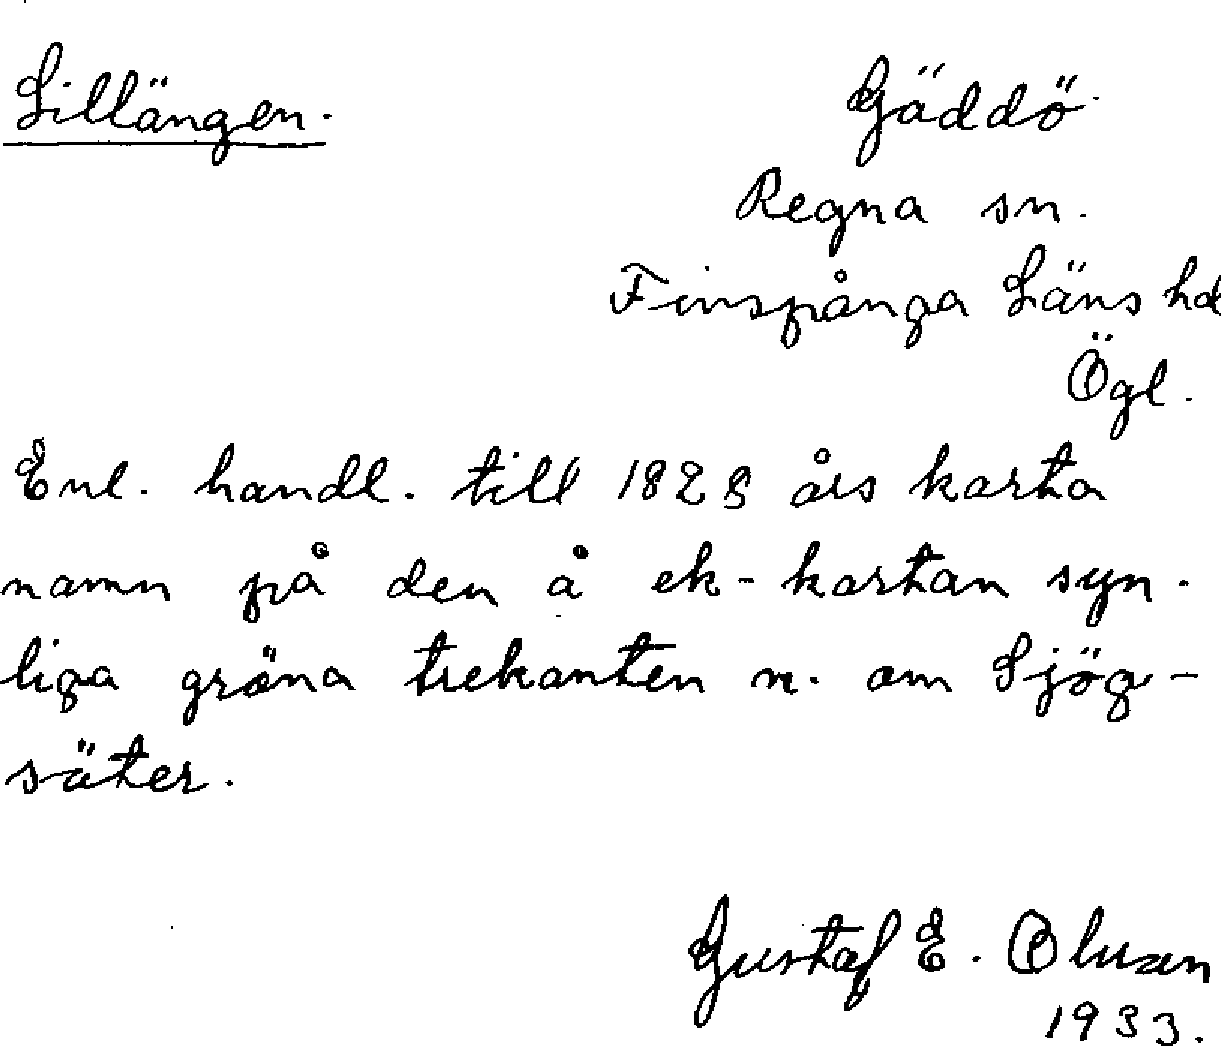 Lillängen.
Gäddö
Regna sn.
Finspånga Läns hd
Ögl.
Enl. handl. till 1828 års karta
namn på den å ek-kartan syn-
liga gröna trekanten n. om Sjög-
säter.
Gustaf E.
1933.